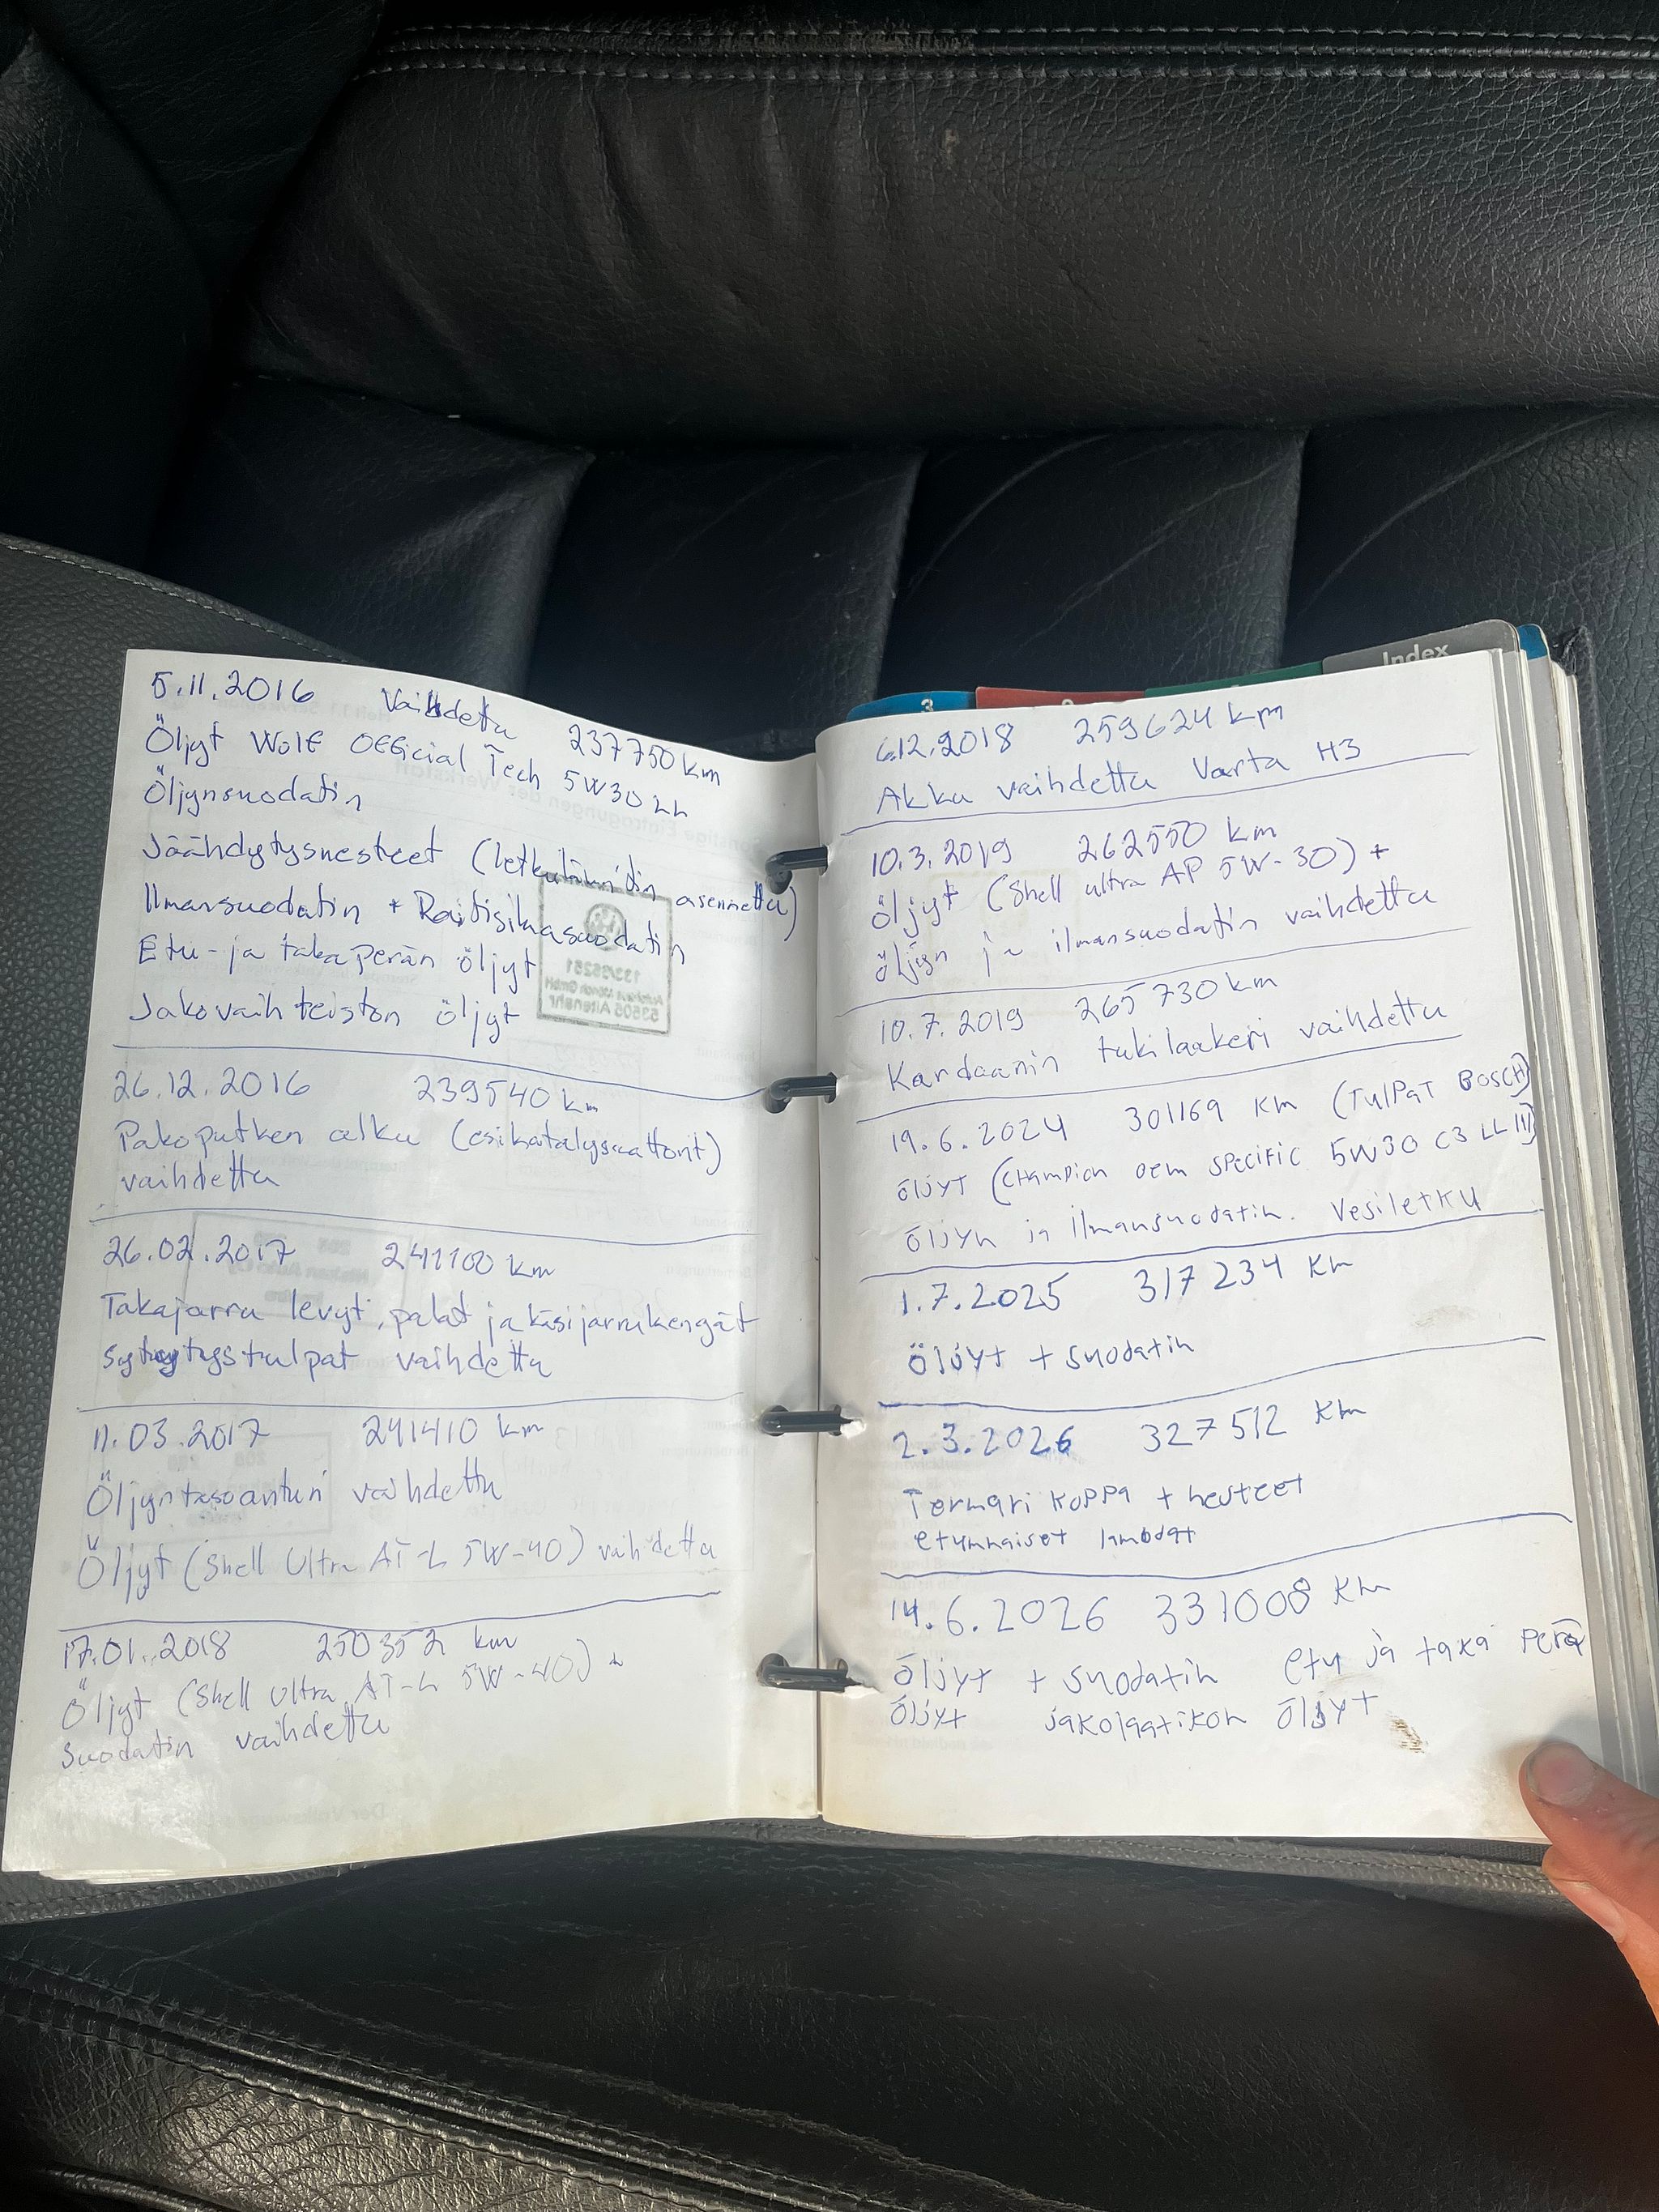 5.11.2016 Vaihdettu 237750 km
Öljyt Wolf Official Tech 5W30 LL
Öljynsuodatin
Jäähdytysnesteet (letkulämmidin asennettu)
Ilmansuodatin + Raitisilmasuodatin
Etu- ja takaperän öljyt
Jakovaihteiston öljyt
26.12.2016 239540 km
Pakoputken alku (esikatalysaattorit)
vaihdettu
26.02.2017 241100 km
Takajarru levyt, palat ja käsijarrukengät
sytytystulpat vaihdettu
11.03.2017 241410 km
Öljyntasoanturi vaihdettu
Öljyt (Shell Ultra AT-L 5W-40) vaihdettu
17.01.2018 250352 km
Öljyt (Shell Ultra AT-L 5W-40) +
Suodatin vaihdettu
Index
3
6.12.2018 259624 km
Akku vaihdettu Varta H3
10.3.2019 262550 km
Öljyt (Shell ultra AP 5W-30) +
öljyn ja ilmansuodatin vaihdettu
10.7.2019 265730 km
Kardaanin tukilaakeri vaihdettu
19.6.2024 301169 KM (TulPaT BOSCH)
ölJYT (CHAMPiON OEM SPECIFIC 5W30 C3 LL III)
ölJYn ja ilmansuodatin. Vesiletku
1.7.2025 317 234 Km
ÖlJYt + Suodatin
2.3.2026 327 512 Km
Termari koppa + nesteet
etummaiset lambdat
14.6.2026 331008 Km
ÖlJYt + Suodatin etu ja taka perä
ölJYt jakolaatikon ölJYt